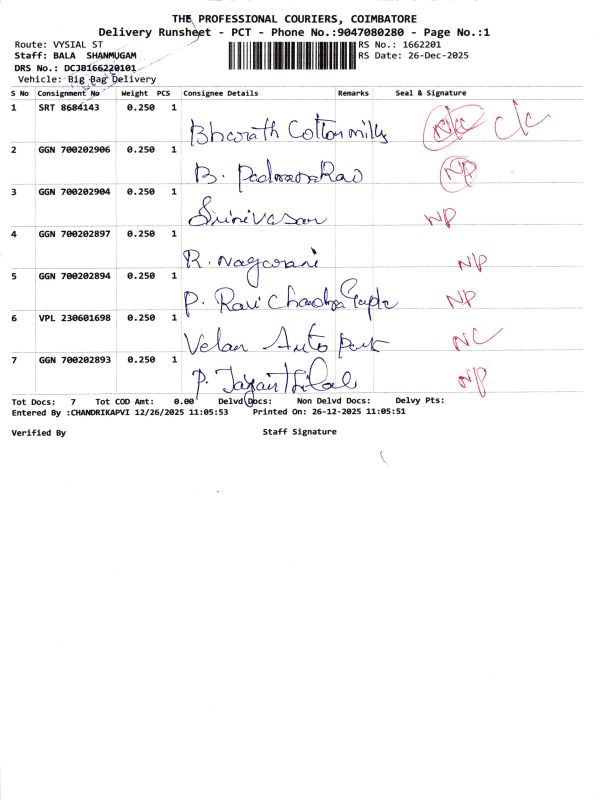 THE PROFESSIONAL COURIERS, COIMBATORE
Delivery Runsheet - PCT - Phone No.:9047080280 - Page No.:1
Route: VYSIAL ST RS No.: 1662201
Staff: BALA SHANMUGAM RS Date: 26-Dec-2025
DRS No.: DCJB166220101
Vehicle: Big Bag Delivery
S No Consignment No Weight PCS Consignee Details Remarks Seal & Signature
1 SRT 8684143 0.250 1
Bharath Cotton mills N/C C/C
2 GGN 700202906 0.250 1
B. PadmanabaRao NP
3 GGN 700202904 0.250 1
Srinivasan NP
4 GGN 700202897 0.250 1
R. Nagarani NP
5 GGN 700202894 0.250 1
P. Ravi Chandra Gupta NP
6 VPL 230601698 0.250 1
Velan Auto Park NC
7 GGN 700202893 0.250 1
P. JayanthiLal NP
Tot Docs: 7 Tot COD Amt: 0.00 Delvd Docs: Non Delvd Docs: Delvy Pts:
Entered By :CHANDRIKAPVI 12/26/2025 11:05:53 Printed On: 26-12-2025 11:05:51
Verified By Staff Signature